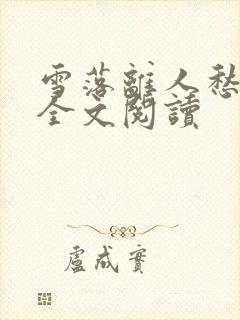 雪落離人愁
全文閱讀
盧成實